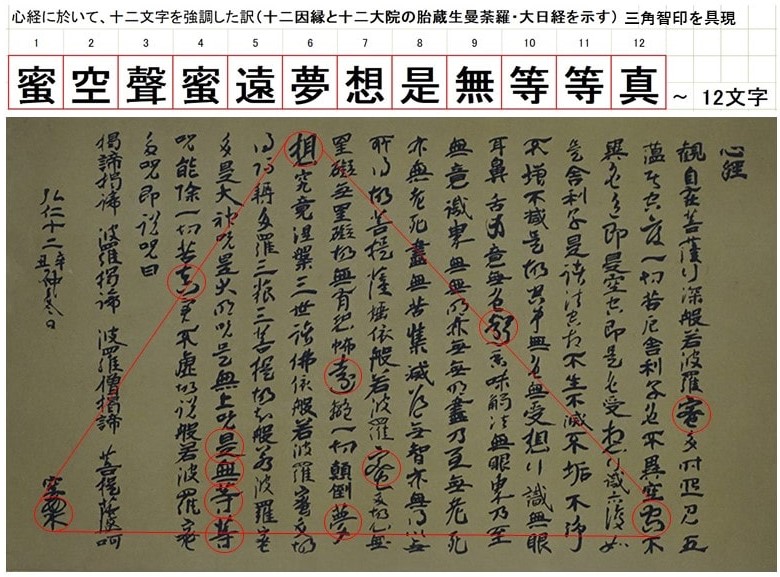 心経に於いて、十二文字を強調した訳(十二因縁と十二大院の胎蔵生曼荼羅・大日経を示す) 三角智印を具現
1 2 3 4 5 6 7 8 9 10 11 12
蜜空聲蜜遠夢想是無等等真 ~ 12文字
心經
観自在菩薩行深般若波羅蜜多時照見五
蘊皆空度一切苦厄舎利子色不異空空不
異色色即是空空即是色受想行識亦復如
是舎利子是諸法空相不生不滅不垢不浄
不増不減是故空中無色無受想行識無眼
耳鼻舌身意無色聲香味觸法無眼界乃至
無意識界無無明亦無無明盡乃至無老死
亦無老死盡無苦集滅道無智亦無得以無
所得故菩提薩埵依般若波羅蜜多故心無
罣礙無罣礙故無有恐怖遠離一切顛倒夢
想究竟涅槃三世諸佛依般若波羅蜜多故
得阿耨多羅三藐三菩提故知般若波羅蜜
多是大神呪是大明呪是無上呪是無等等
呪能除一切苦真實不虚故説般若波羅蜜
多呪即説呪曰
揭諦揭諦 波羅揭諦 波羅僧揭諦 菩提薩婆呵
弘仁十二